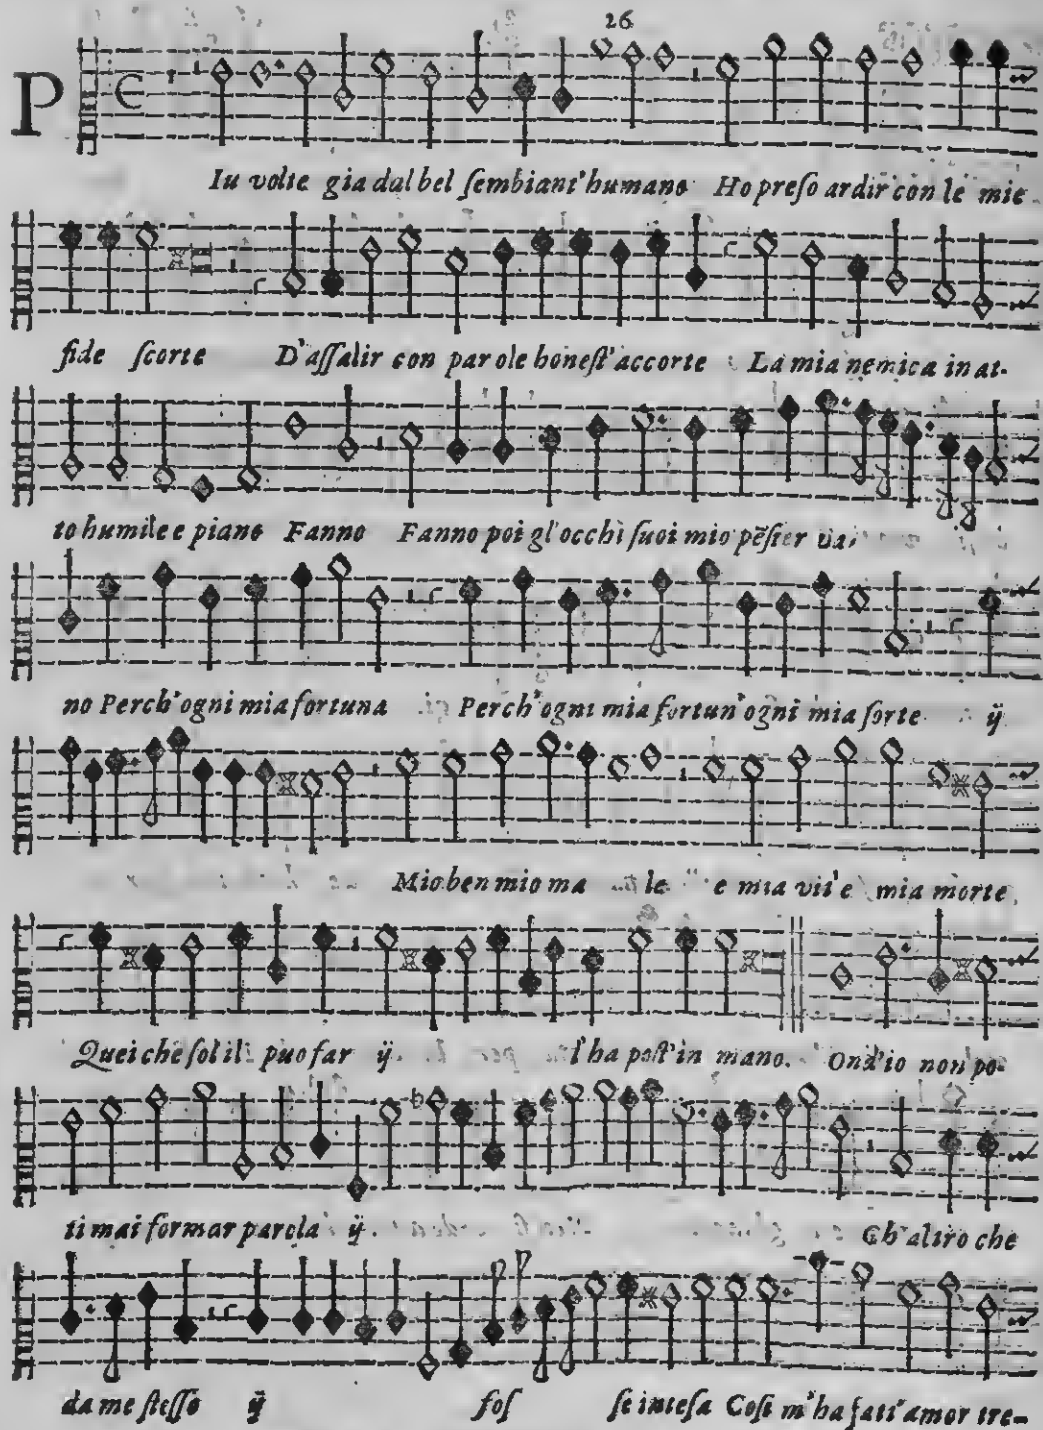 26
P
Iu volte gia dal bel ſembiant'humano Ho preſo ardir con le mie
fide ſcorte D'aſſalir con parole honeſt'accorte La mia nemica in at-
to humile e piano Fanno Fanno poi gl'occhi ſuoi mio pēſier va
no Perch'ogni mia fortuna Perch'ogni mia fortun'ogni mia ſorte ij
Mio ben mio ma le e mia vit'e mia morte
Quei che ſol il puo far ij l'ha poſt'in mano. Ond'io non po-
ti mai formar parola ij Ch'altro che
da me ſteſſo ij foſ ſe inteſa Coſi m'ha fatt'amor tre-